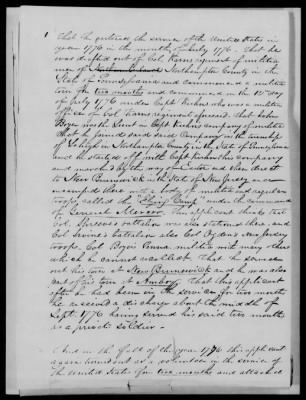 That he entered the service of the United States in
year 1776 in the month of July 1776. That he
was drafted out of Col Karns regiment of militia
men of Northumberland Northampton County in the
State of Pennsylvania and commenced a militia
tour for two months and commenced on the 12th day
of July 1776 under Capt who was a militia
officer of Col Karns regiment aforesaid, that John
Boyer was the Lieut in Capt company of militia
that he found said said Company in the township
of Lehigh in Northampton County in the State of Pennsylvania
and he started off with Capt this company
and marched by the way of Easton and then across
to New Brunswick in the State of New Jersey, &
encamped there with a body of militia and regular
troops, called the "Flying Camp" under the command
of General Mercer. This applicant thinks that
Col battalion was stationed there, and
Col battalion also Col regular
troops, Col Penna. militia with many others
which he cannot recollect. That he served
out his tour at New Brunswick and he was also
part of his tour at Amboy. That this applicant
after he had been in the service for two months
he received a discharge about the middle of
Sept. 1776 having served his said two months
as a private soldier.
And in the fall of the year 1776 this applicant
again turned out as a volunteer in the service of
the United States for two months and attached